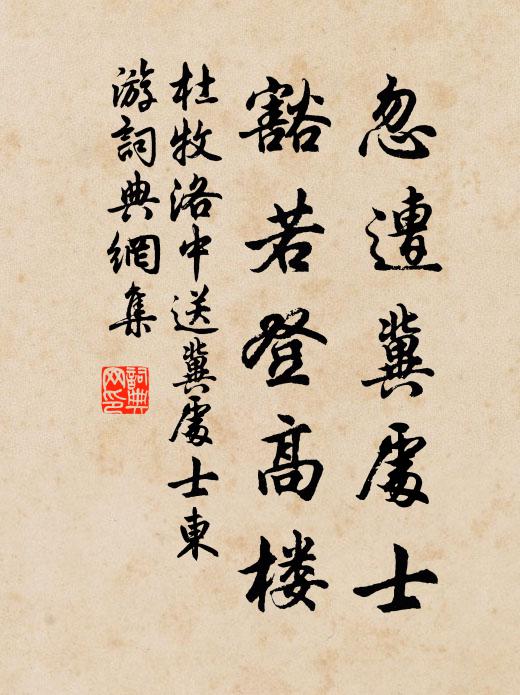 忽遭冀處士
豁若登高楼
杜牧洛中送冀處士東
游詞典網集
詞典
网印